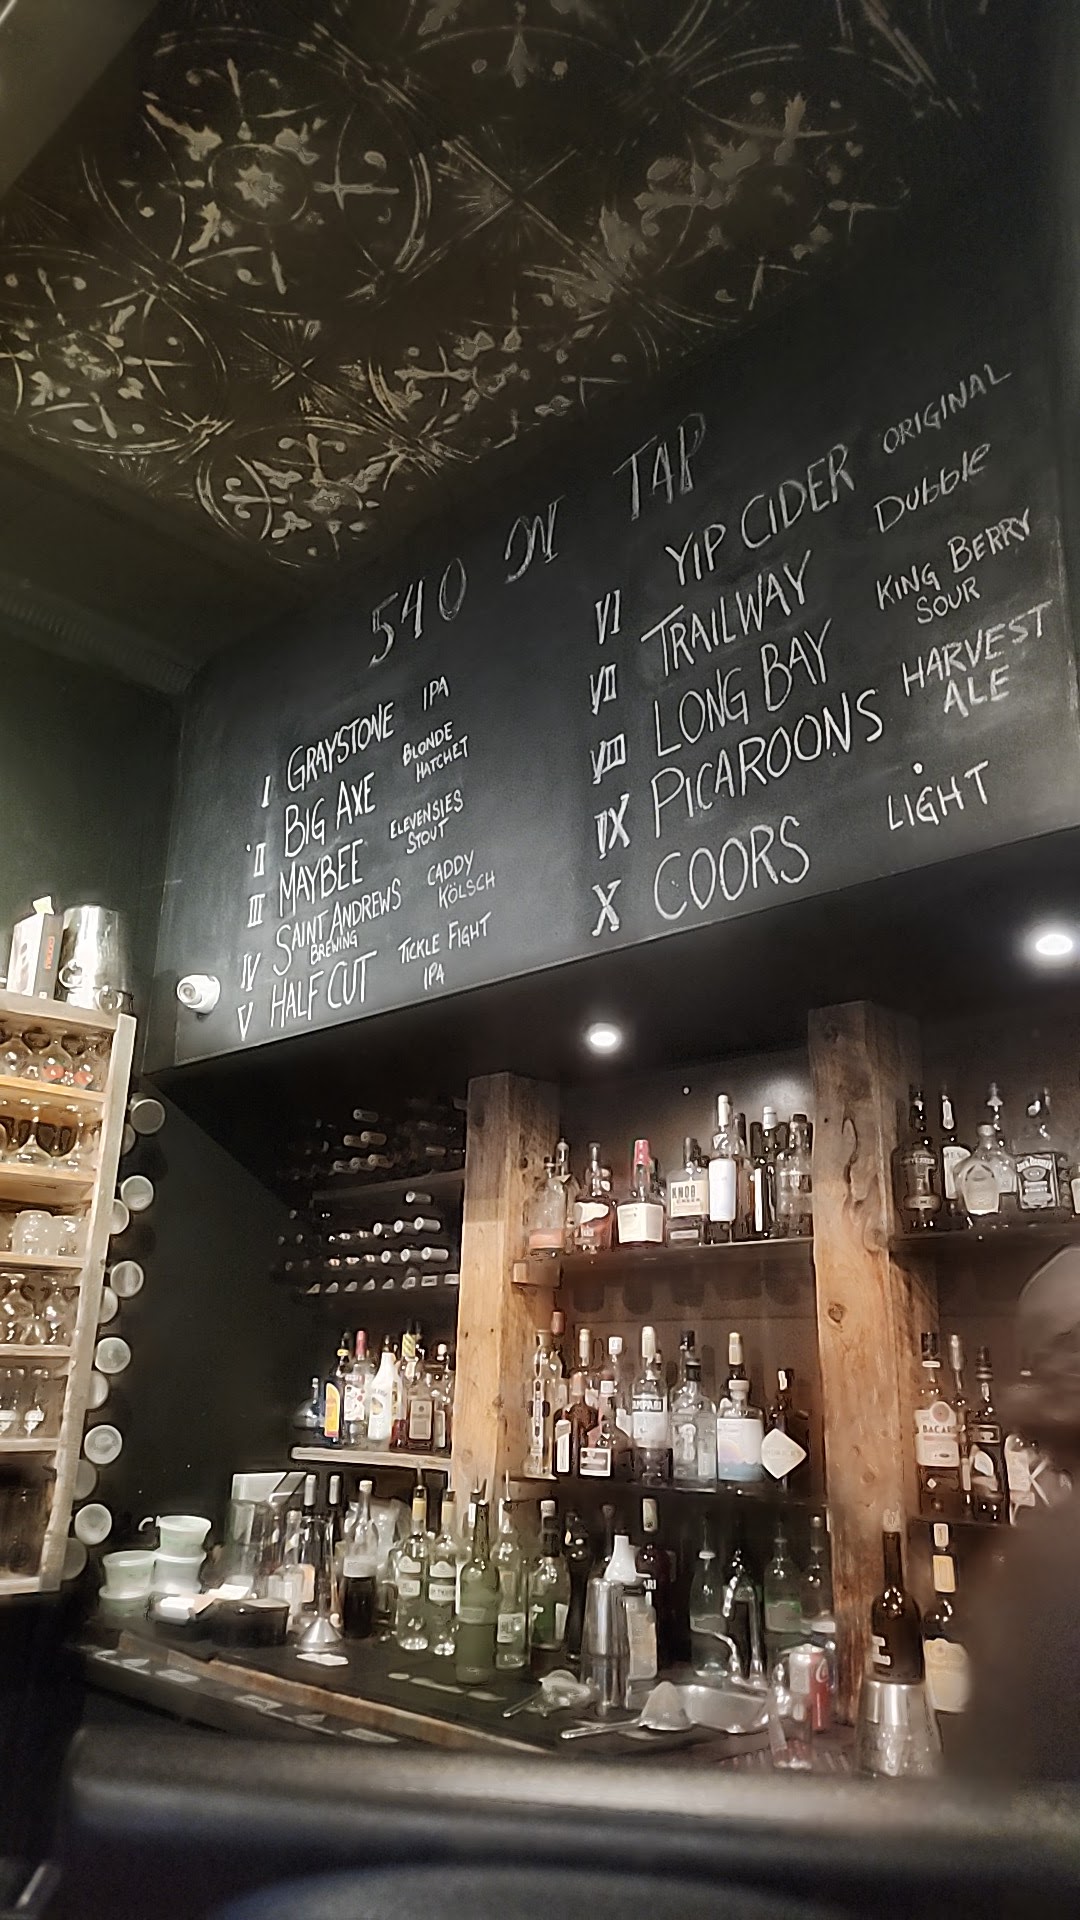 540 ON TAP
I GRAYSTONE IPA
II BIG AXE BLONDE
HATCHET
III MAYBEE ELEVENSIES
STOUT
IV SAINT ANDREWS CADDY
BREWING KÖLSCH
V HALF CUT TICKLE FIGHT
IPA
VI YIP CIDER ORIGINAL
VII TRAILWAY Dubble
VIII LONG BAY KING BERRY
SOUR
IX PICAROONS HARVEST
ALE
X COORS LIGHT
KNOB
CAMPARI
BACARDI